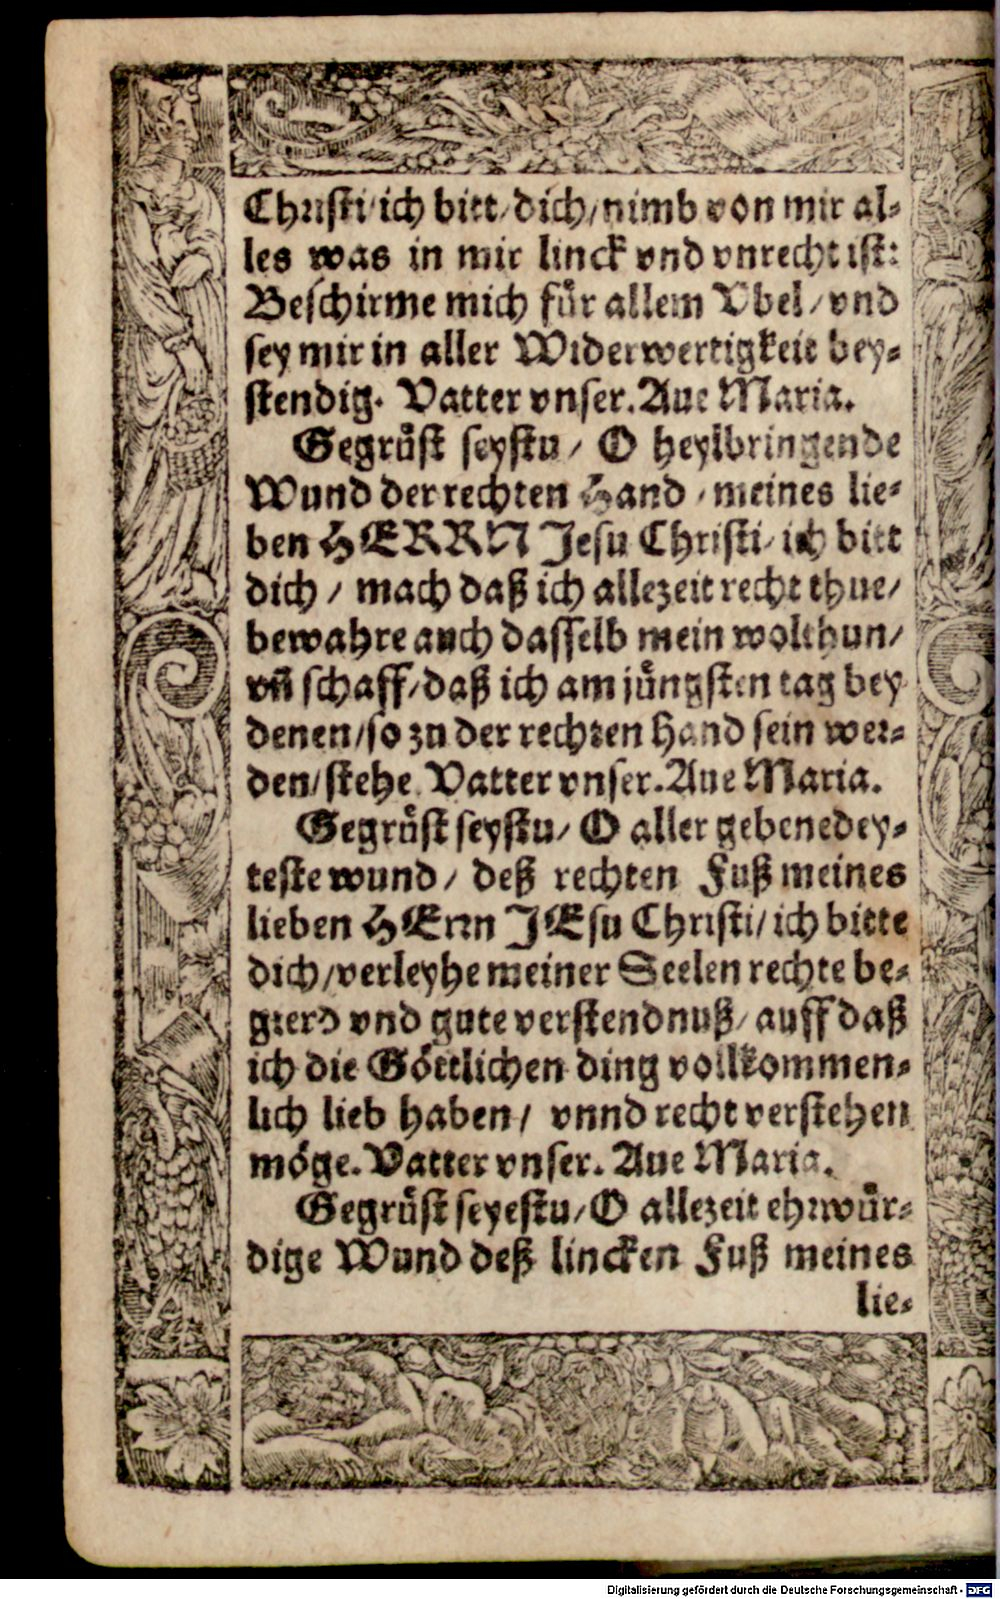 Christi/ ich bitt/ dich/ nimb von mir al-
les was in mir linck vnd vnrecht ist:
Beschirme mich fuͤr allem Vbel/ vnd
sey mir in aller Widerwertigkeit bey-
stendig. Vatter vnser. Aue Maria.
Gegruͤst seystu/ O heylbringende
Wund der rechten Hand/ meines lie-
ben HERRN Jesu Christi/ ich bitt
dich/ mach daß ich allezeit recht thue/
bewahre auch dasselb mein wolthun/
vñ schaff/ daß ich am juͤngsten tag bey
denen/ so zu der rechten Hand sein wer-
den/ stehe. Vatter vnser. Aue Maria.
Gegruͤst seystu/ O aller gebenedey-
teste wund/ deß rechten Fuß meines
lieben HErrn JEsu Christi/ ich bitte
dich/ verleyhe meiner Seelen rechte be-
gierd vnd gute verstendnuß/ auff daß
ich die Goͤttlichen ding vollkommen-
lich lieb haben/ vnnd recht verstehen
moͤge. Vatter vnser. Aue Maria.
Gegruͤst seyestu/ O allezeit ehrwuͤr-
dige Wund deß lincken Fuß meines
lie-
Digitalisierung gefördert durch die Deutsche Forschungsgemeinschaft - DFG